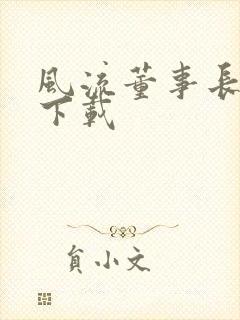 風流董事長
下載
貟小文